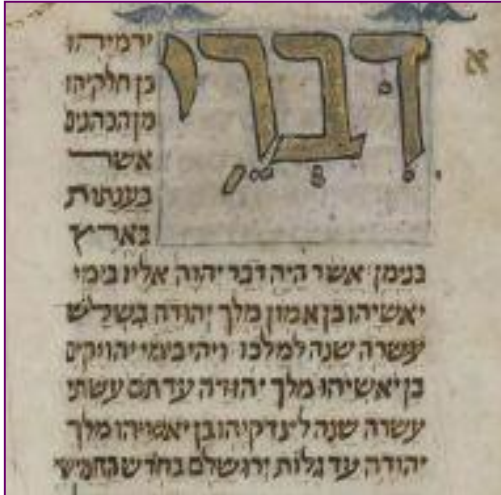 א
דִּבְרֵי
ירמיהו
בן חלקיהו
מן הכהנים
אשר
בענתות
בארץ
בנימן׃ אשר היה דבר יהוה אליו בימי
יאשיהו בן אמון מלך יהודה בשלש
עשרה שנה למלכו׃ ויהי בימי יהויקים
בן יאשיהו מלך יהודה עד תם עשתי
עשרה שנה לצדקיהו בן יאשיהו מלך
יהודה עד גלות ירושלם בחדש החמישי